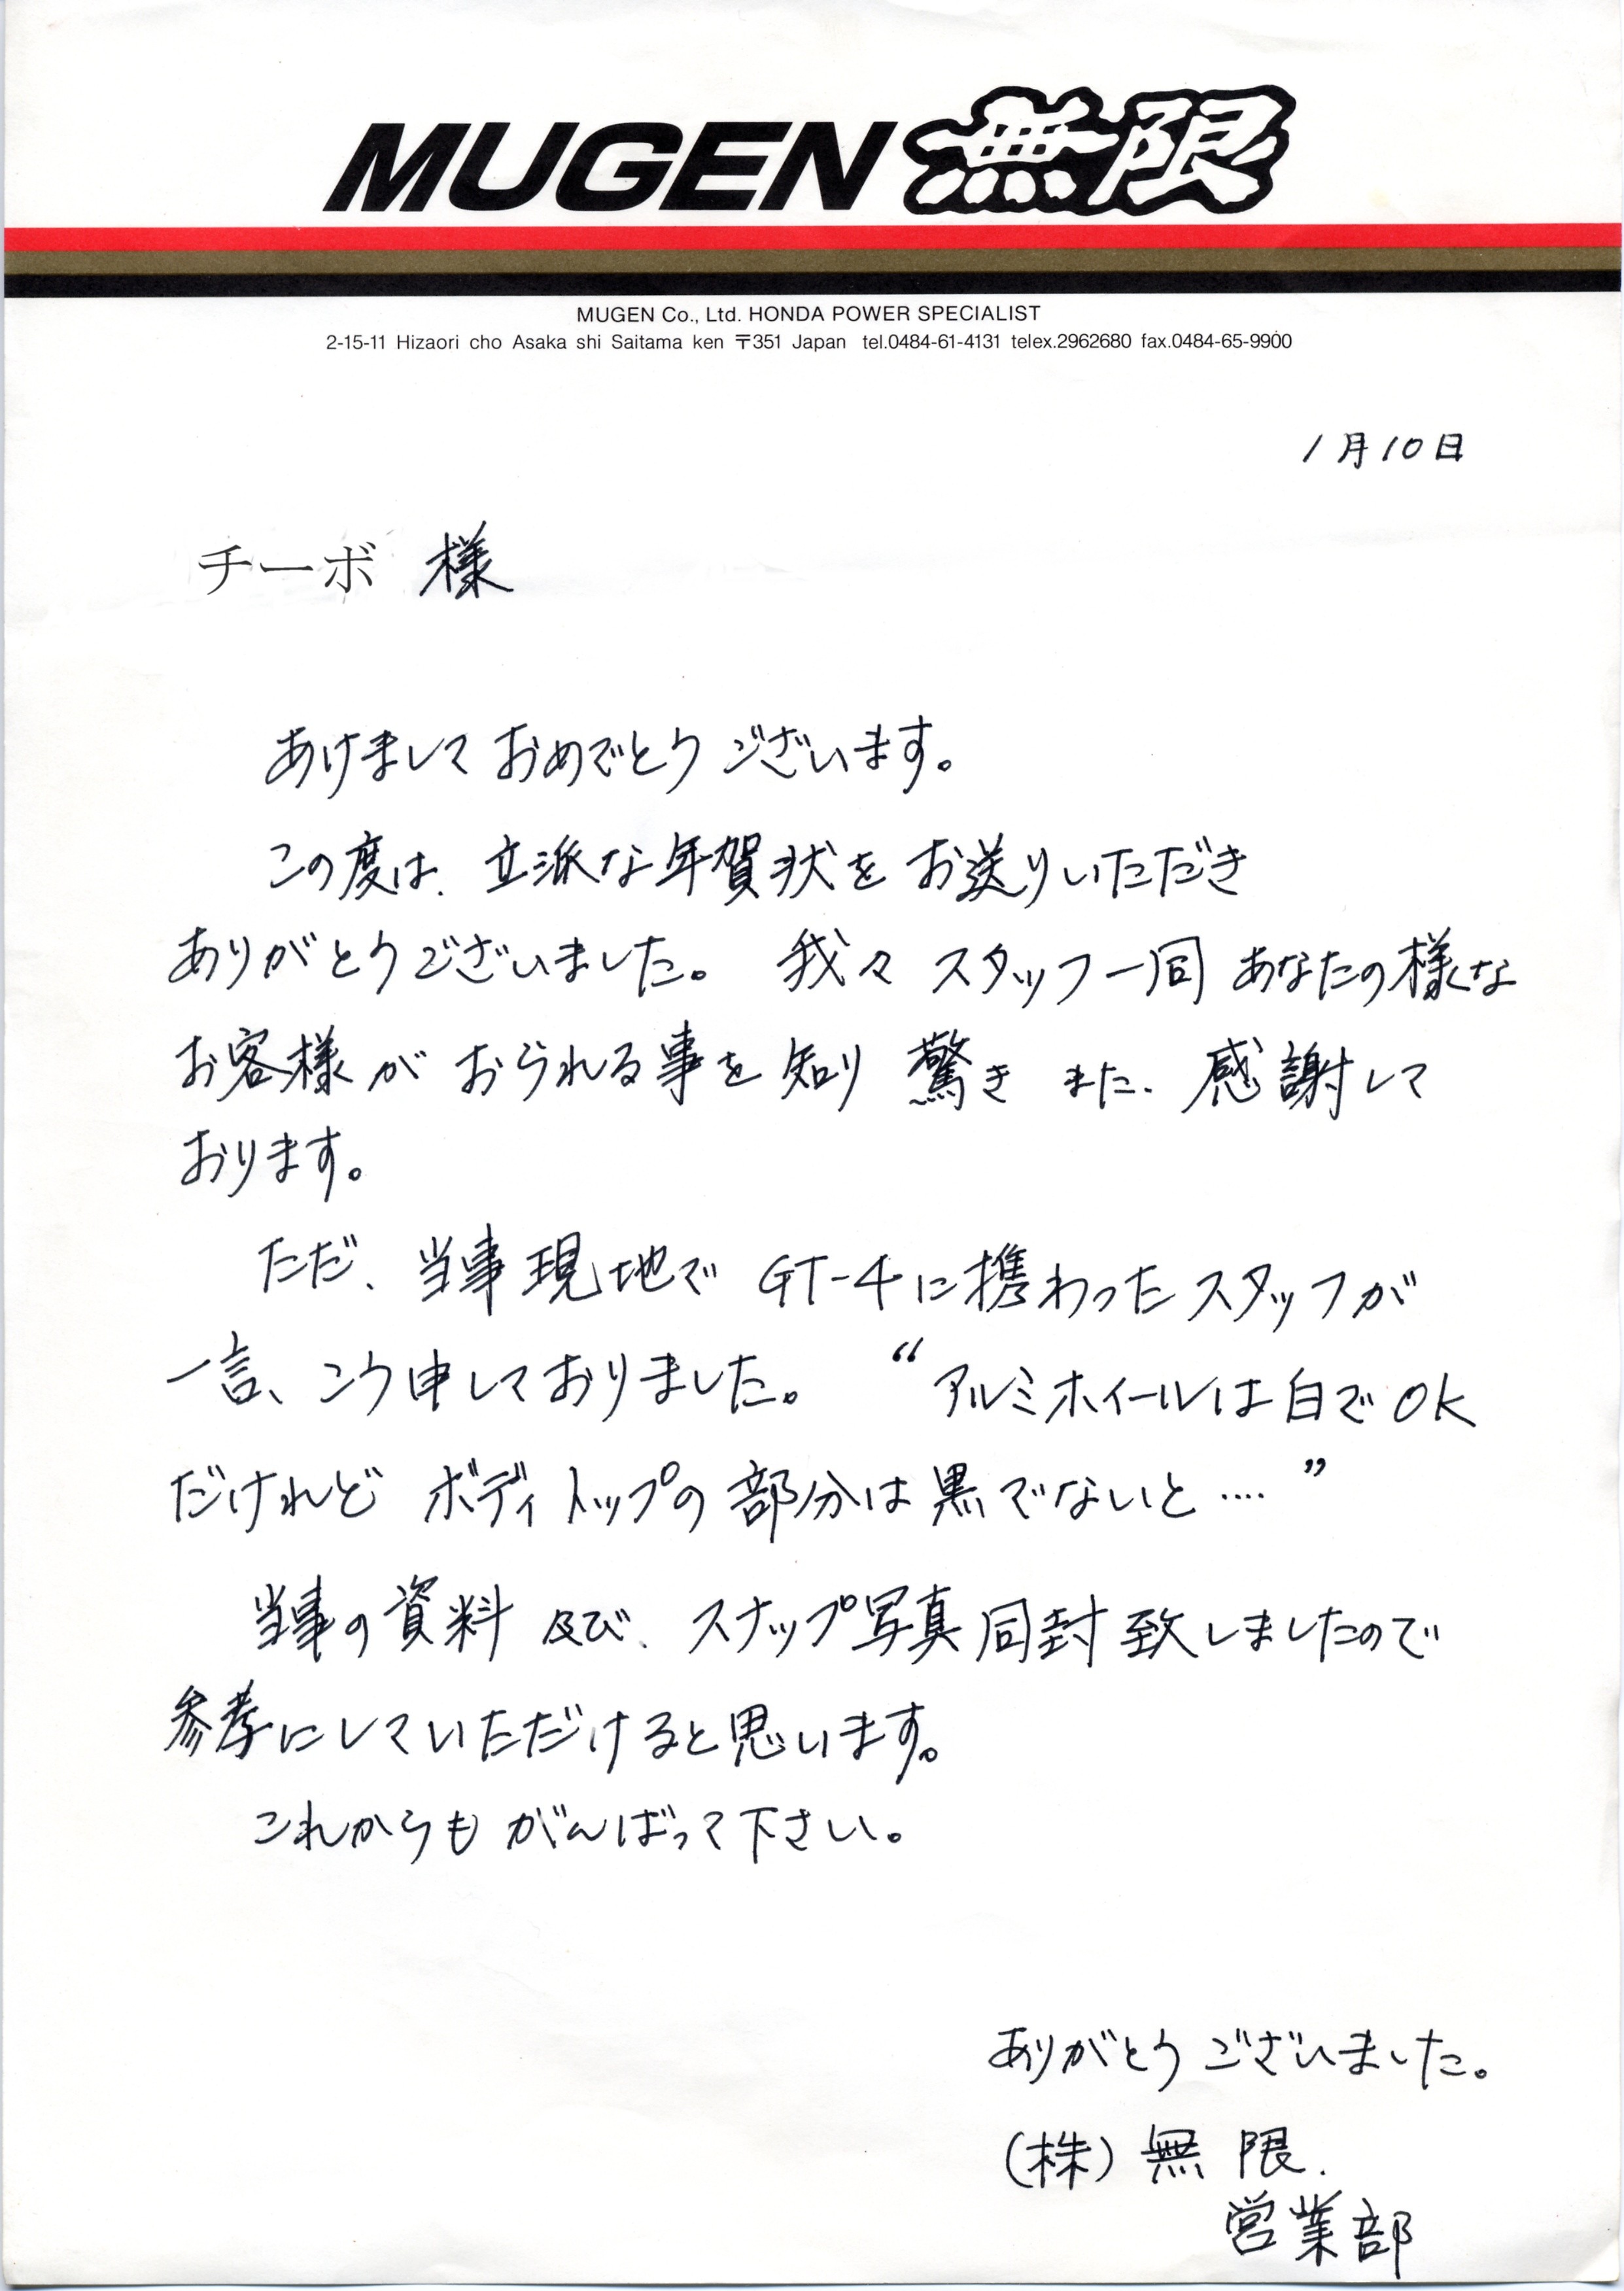 MUGEN 無限
MUGEN Co., Ltd. HONDA POWER SPECIALIST
2-15-11 Hizaori cho Asaka shi Saitama ken 〒351 Japan tel.0484-61-4131 telex.2962680 fax.0484-65-9900
1月10日
チーボ 様
あけまして おめでとう ございます。
この度は、立派な年賀状を お送りいただき
ありがとうございました。 我々 スタッフ一同 あなたの様な
お客様が おられる事を 知り 驚き また、感謝して
おります。
ただ、当事現地で GT-4に携わったスタッフが
一言、こう申しておりました。 “アルミホイールは白でOK
だけれど ボディトップの 部分は黒でないと‥‥”
当事の資料 及び、スナップ写真同封致しましたので
参考にしていただけると思います。
これからも がんばって下さい。
ありがとう ございました。
(株) 無 限.
営業部